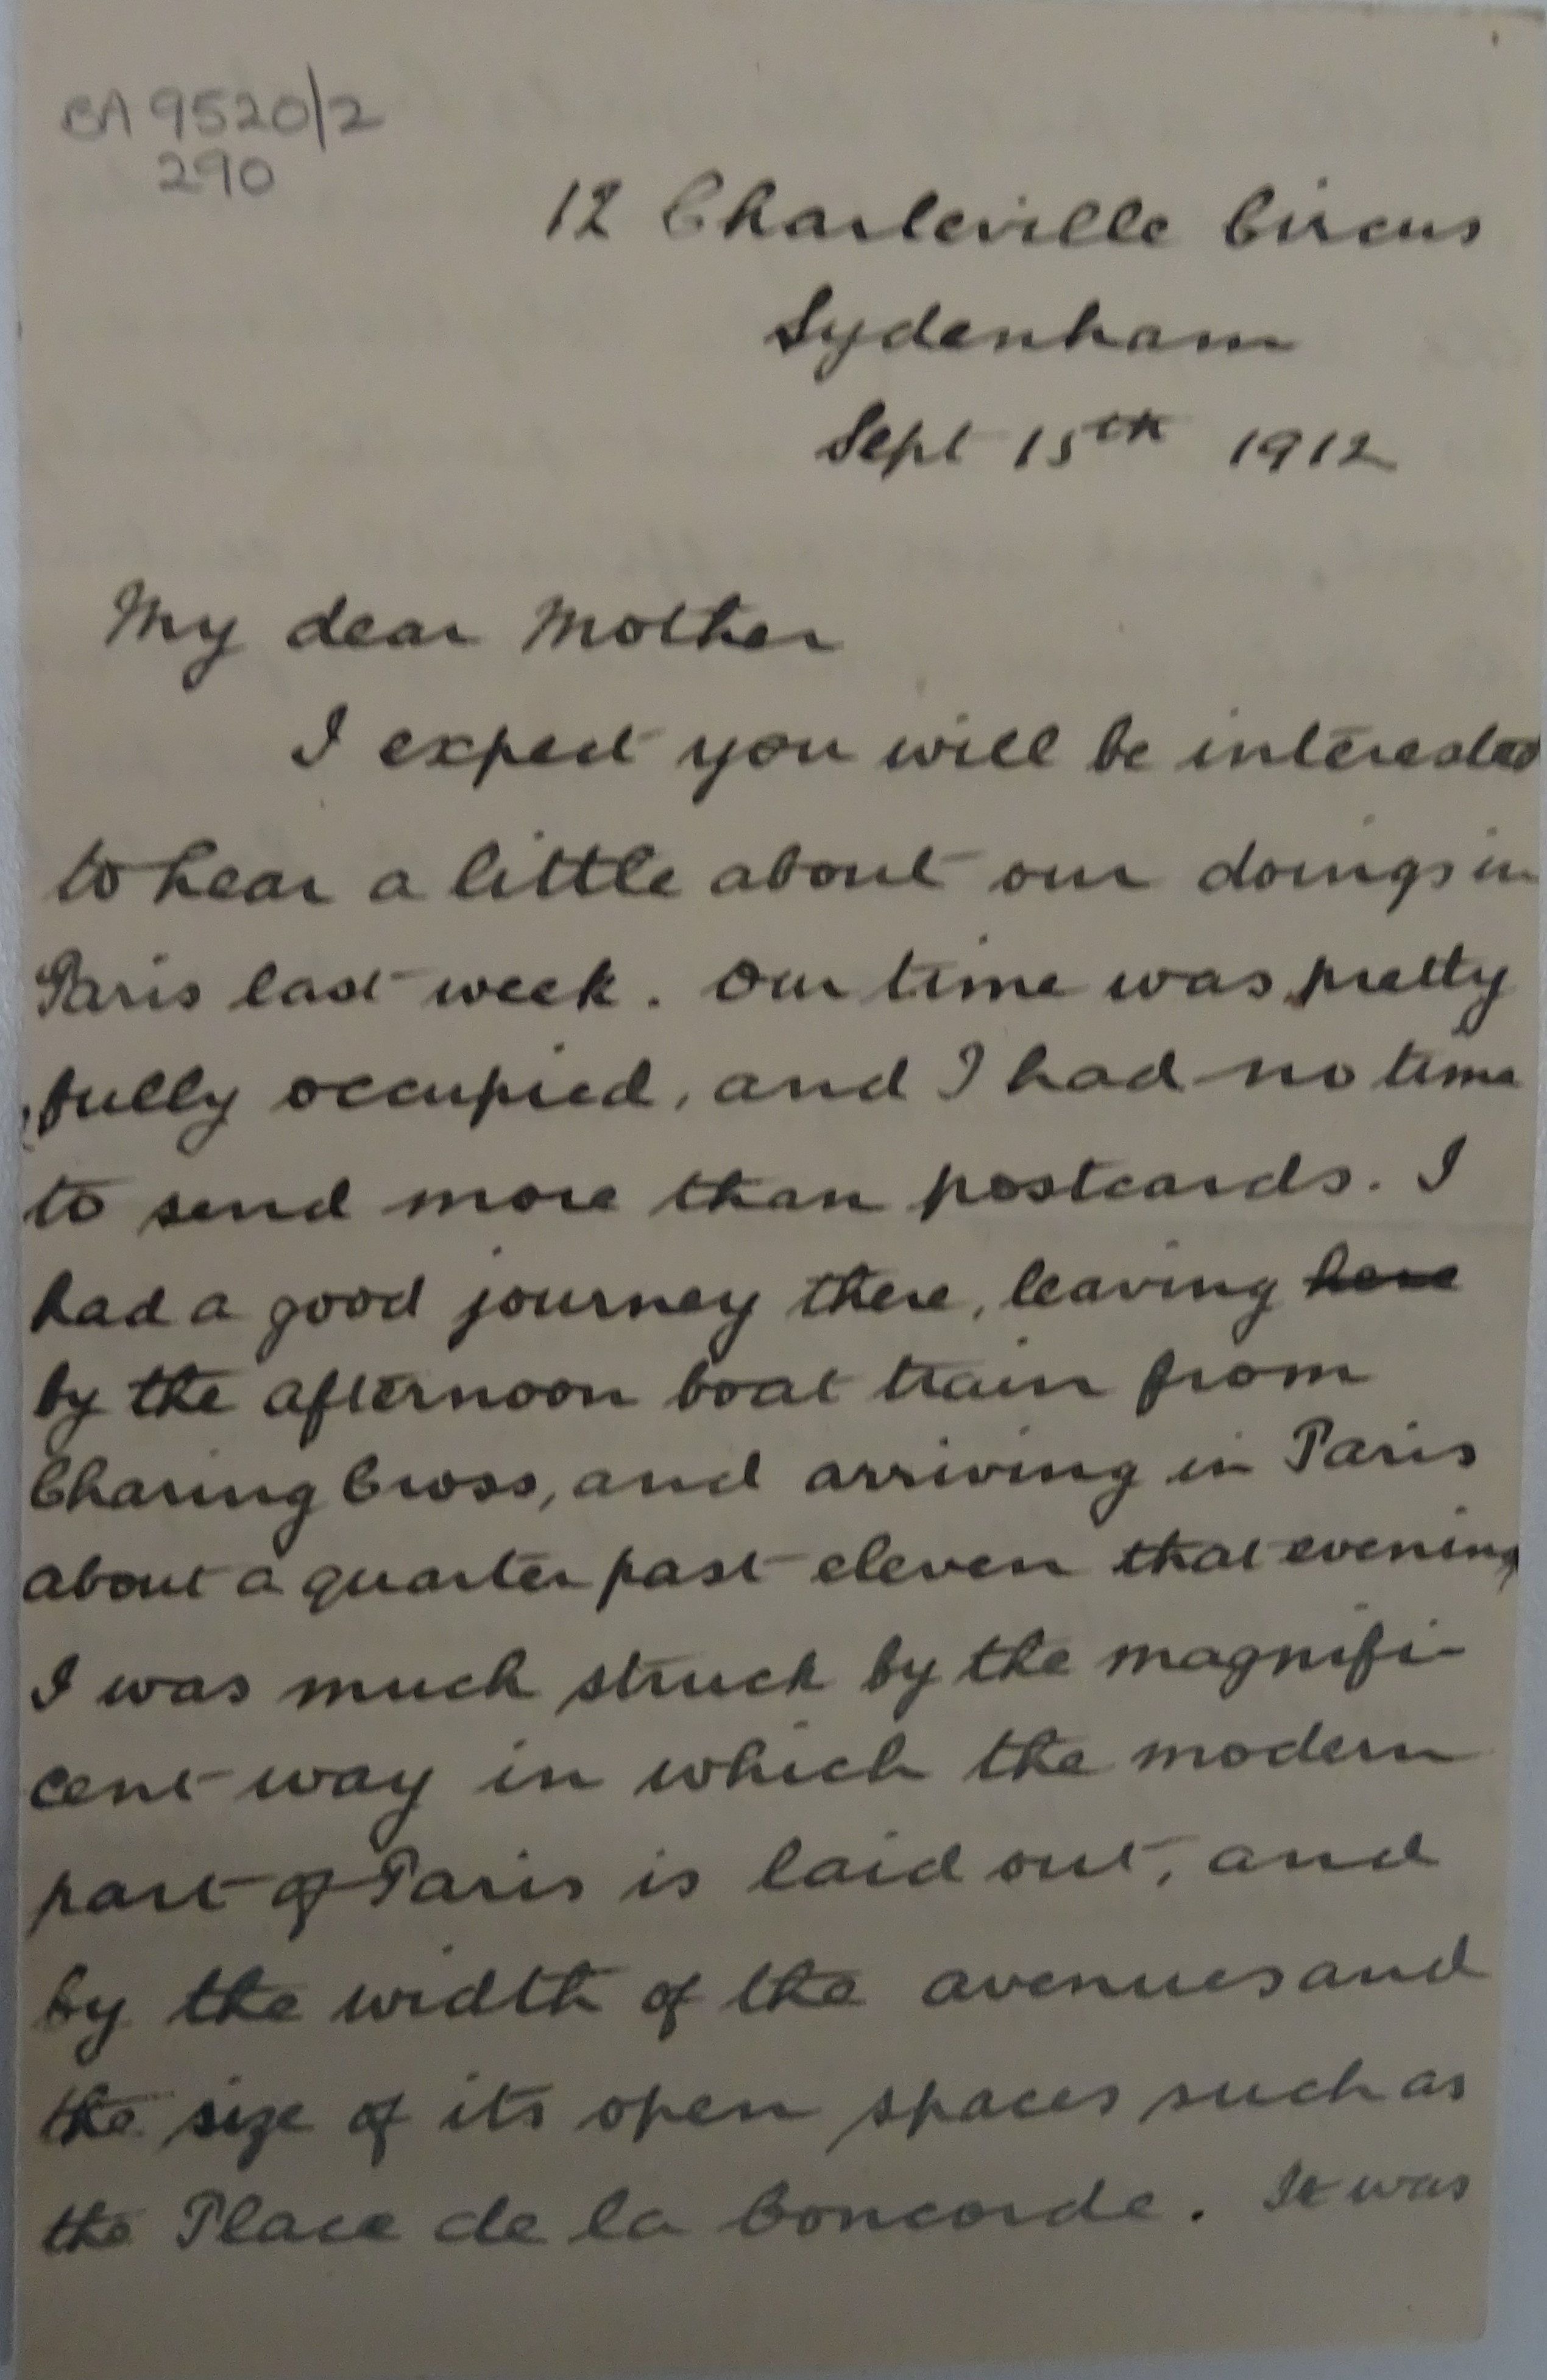 BA 9520/2
290
12 Charleville Circus
Sydenham
Sept 15th 1912
My dear Mother
I expect you will be interested
to hear a little about our doings in
Paris last week. Our time was pretty
fully occupied, and I had no time
to send more than postcards. I
had a good journey there, leaving here
by the afternoon boat train from
Charing Cross, and arriving in Paris
about a quarter past eleven that evening
I was much struck by the magnifi-
cent way in which the modern
part of Paris is laid out, and
by the width of the avenues and
the size of its open spaces such as
the Place de la Concorde. It was